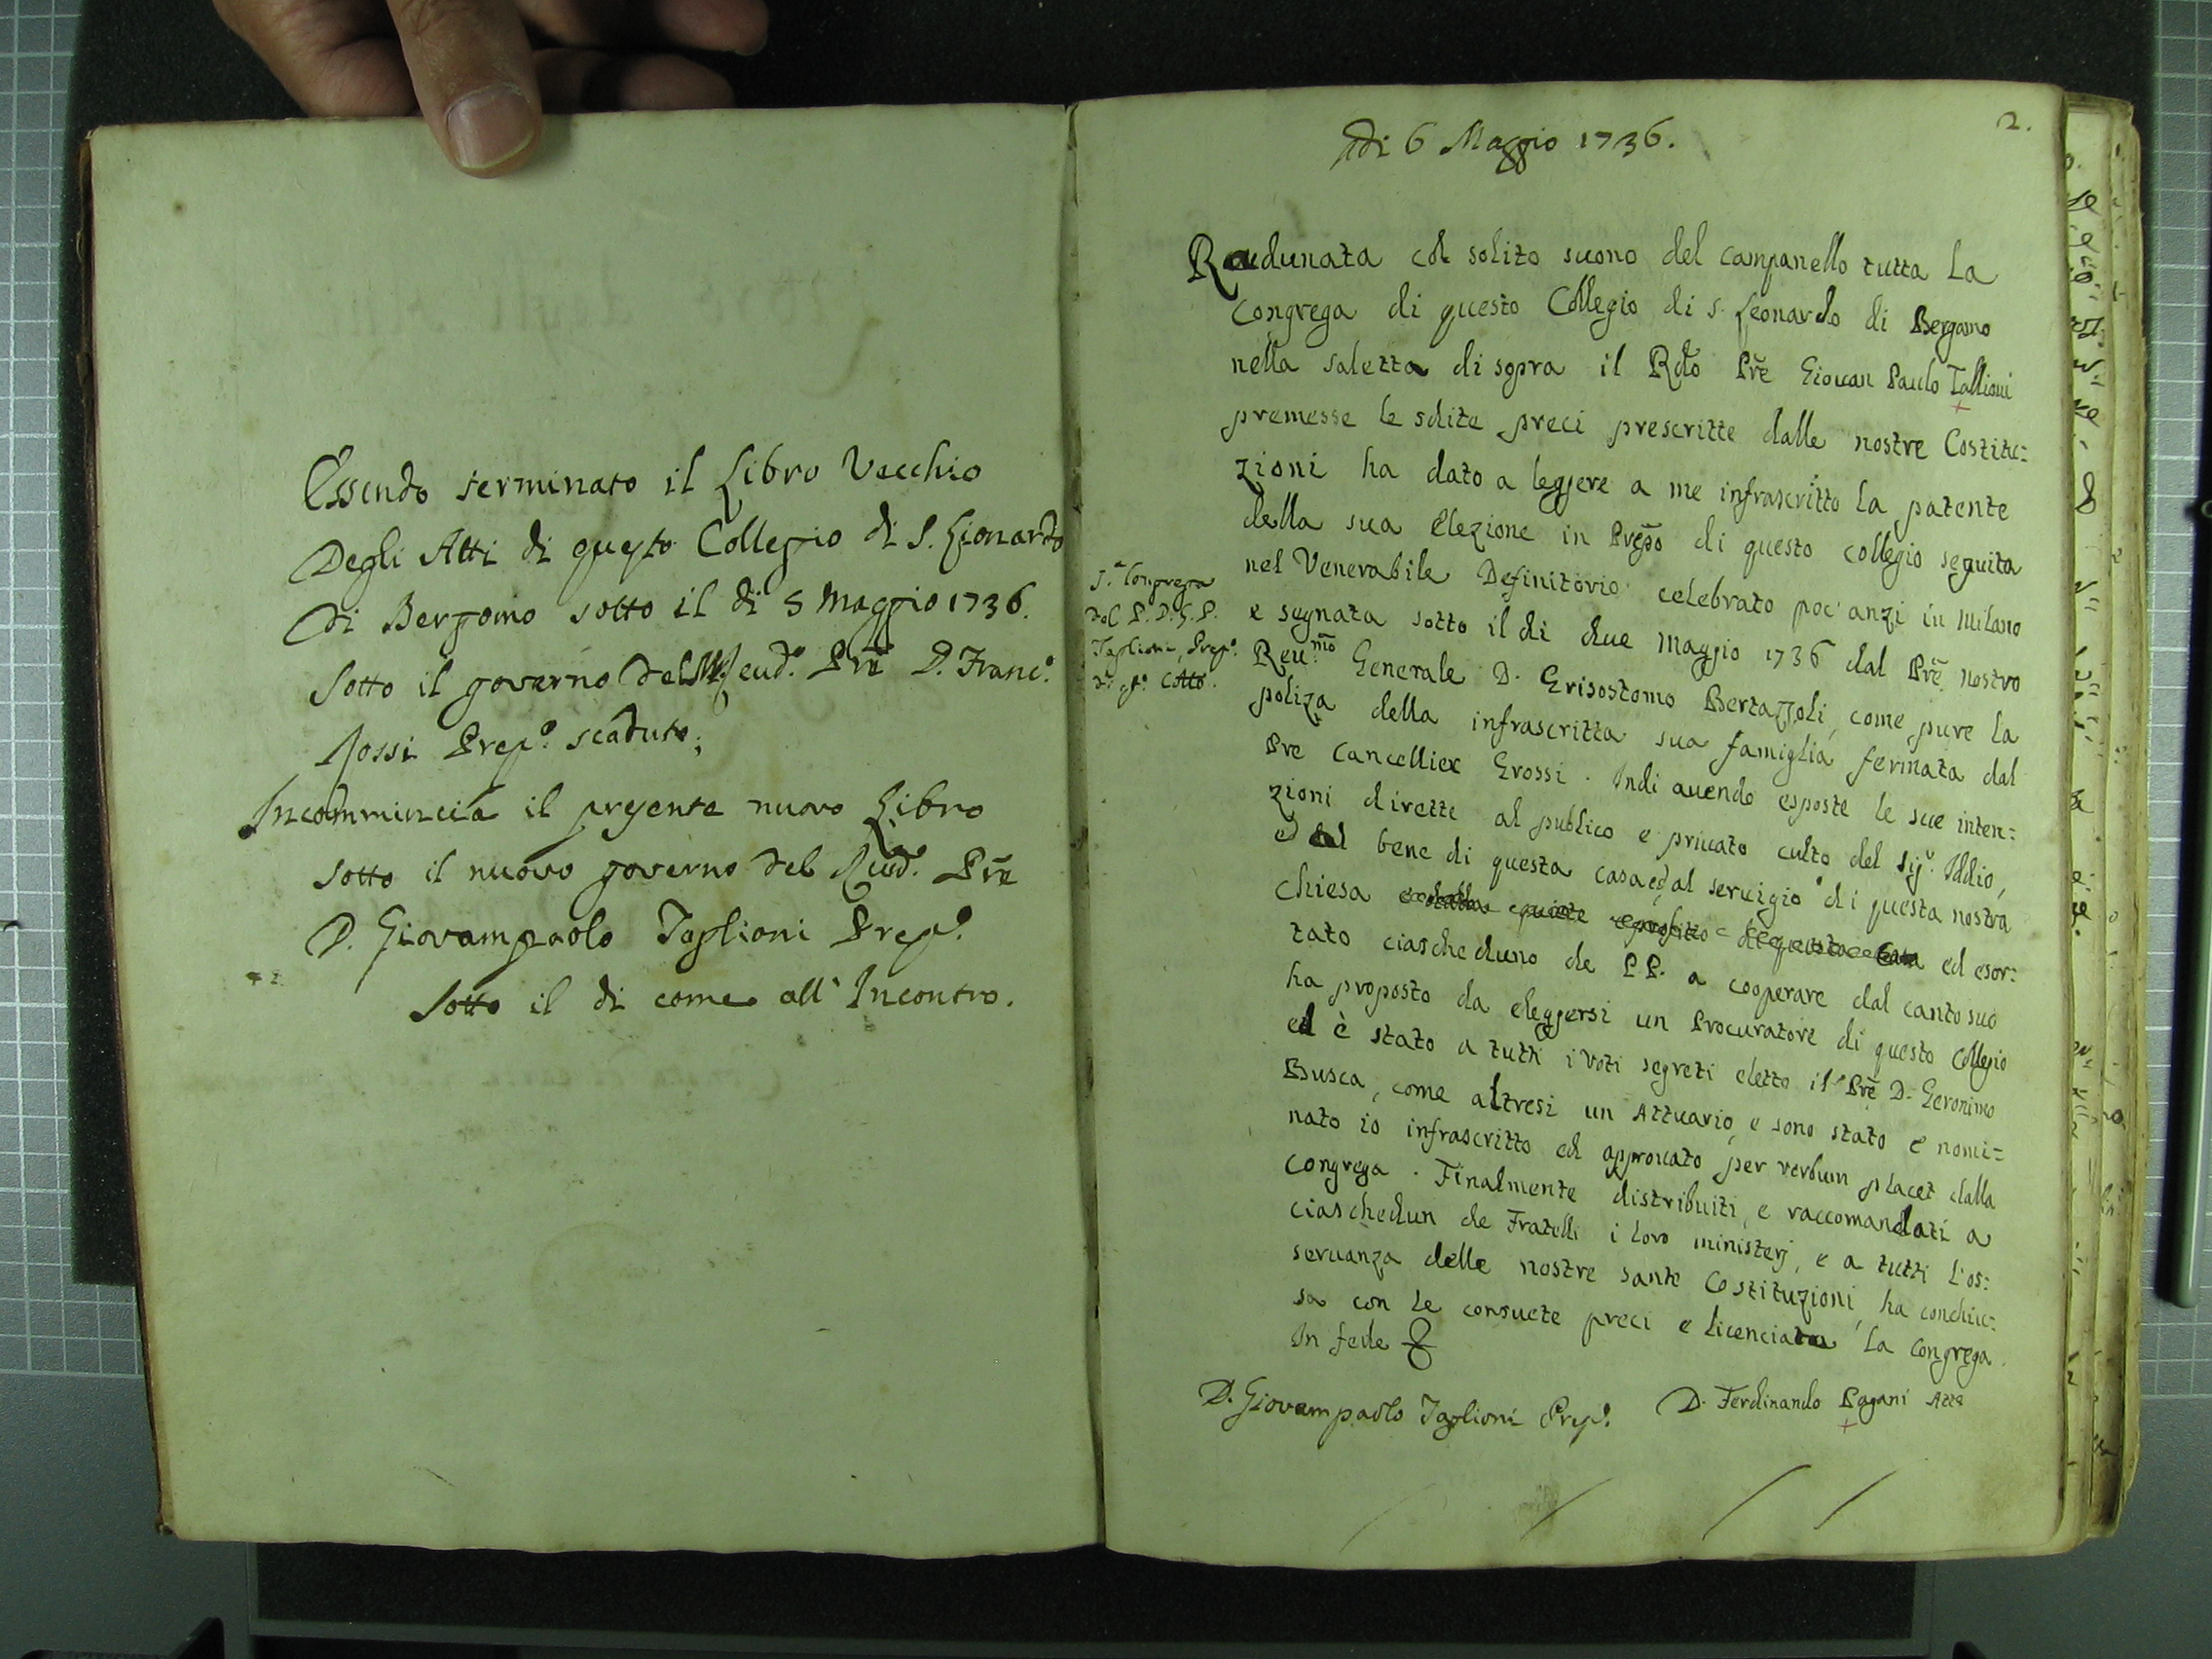 Essendo terminato il Libro Vecchio
Degli Atti di questo Collegio di S. Lionardo
Di Bergomo sotto il di 5 Maggio 1736.
Sotto il governo del Reud.º Prē D. Franc.º
Rossi Prep.º scaduto;
Incommincia il presente nuovo Libro
sotto il nuovo governo del Reud.º Prē
D. Giovampaolo Taglioni Prep.º
Sotto il di come all' Incontro.
2.
Adi 6 Maggio 1736.
Radunata col solito suono del campanello tutta la
Congrega di questo Collegio di S. Leonardo di Bergamo
nella saletta di sopra il Rdo Prē Giouan Paulo Tallioni
premesse le solite preci prescritte dalle nostre Costitu=
zioni ha dato a leggere a me infrascritto la patente
della sua elezione in Prepo di questo collegio seguita
nel Venerabile Definitorio celebrato poc' anzi in Milano
e segnata sotto il di due Maggio 1736 dal Prē nostro
Reu.mo Generale D. Grisostomo Bertazzoli, come pure la
poliza della infrascritta sua famiglia fermata dal
Pre Cancellier Grossi. Indi auendo esposte le sue inten=
zioni dirette al publico e priuato culto del Sig.r Iddio,
ed al bene di questa casa ed al seruigio di questa nostra
chiesa ed esor=
tato ciascheduno de PP. a cooperare dal canto suo
ha proposto da eleggersi un Procuratore di questo Collegio
ed è stato a tutti i voti segreti eletto il Prē D. Geronimo
Busca, come altresi un Attuario, e sono stato e nomi=
nato io infrascritto ed approuato per verbum placet dalla
Congrega. Finalmente distribuiti, e raccomandati a
ciaschedun de Fratelli i loro ministerj, e a tutti l'os=
seruanza delle nostre sante Costituzioni, ha conchiu=
sa con le consuete preci e licenciata la Congrega.
In fede
D. Giovampaolo Taglioni Prep.º D. Ferdinando Pagani Atto
J.ª Congrega
del P. D. G. P.
Taglioni, Prep.º